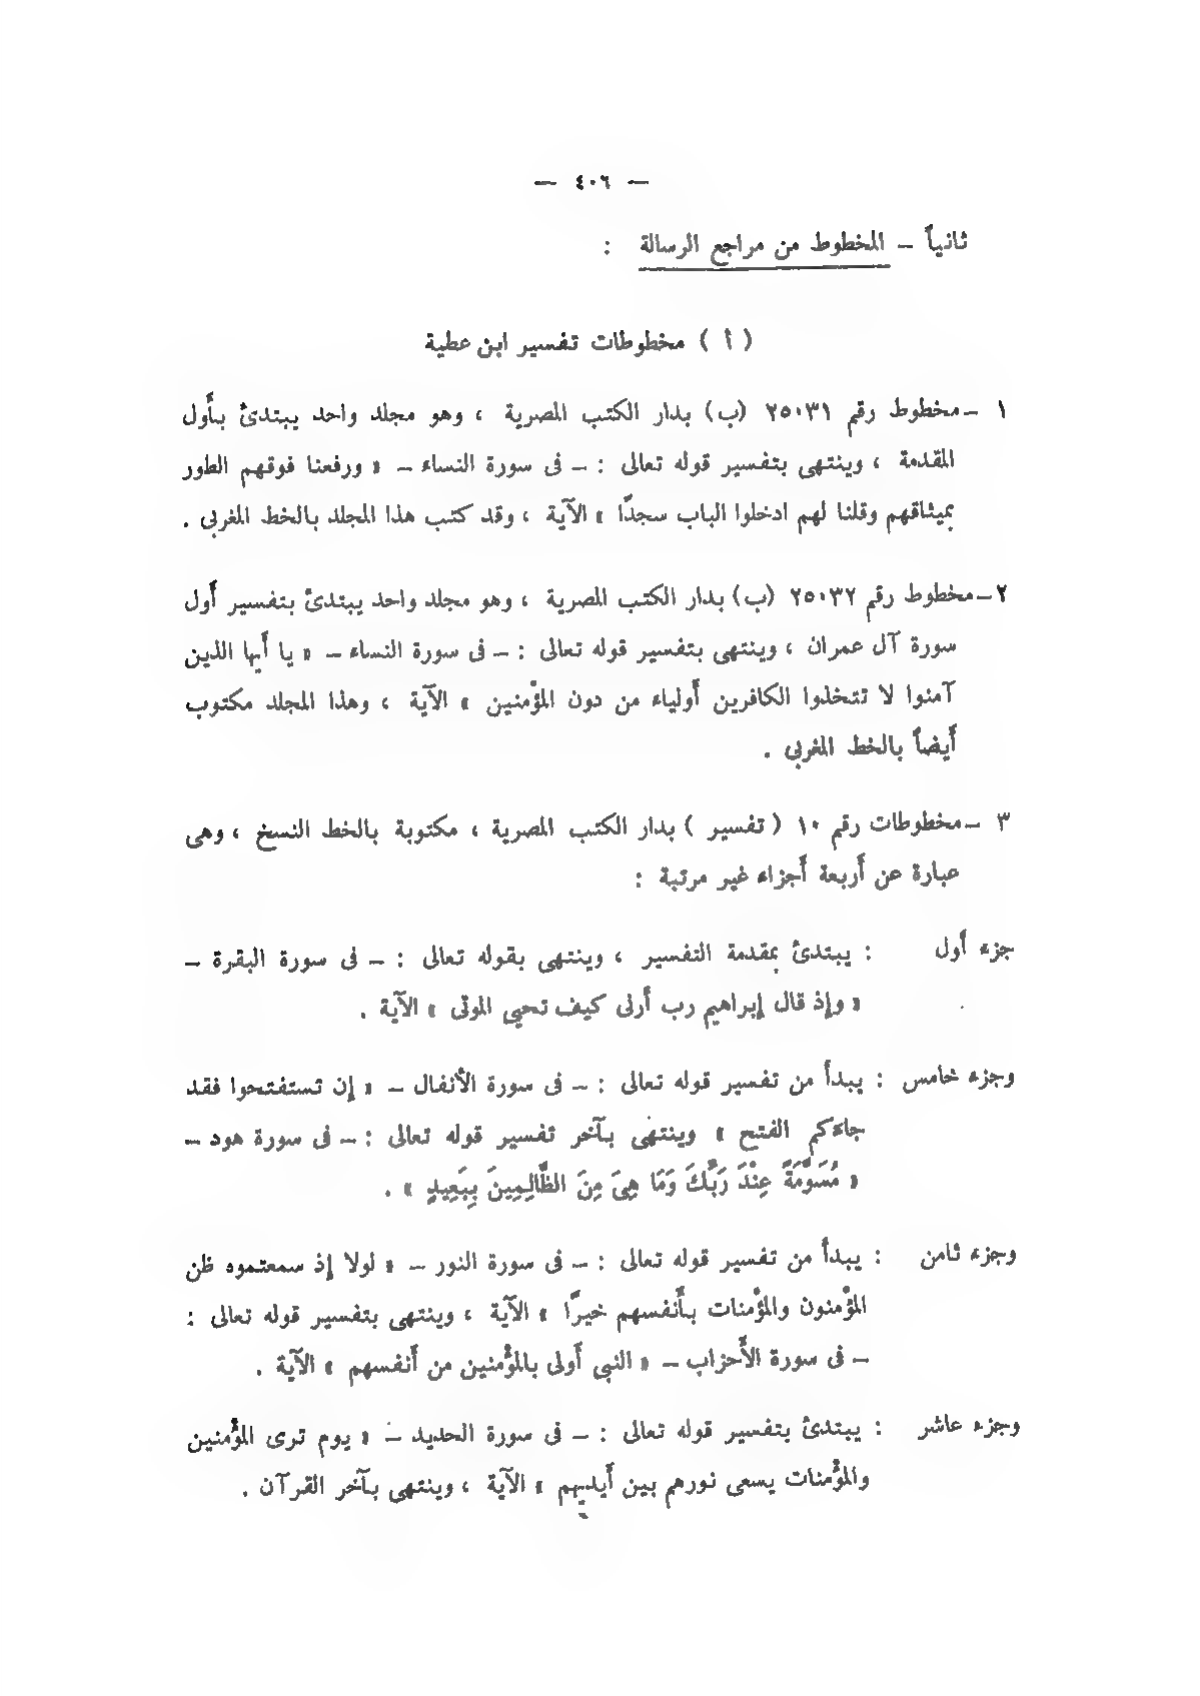 — ٤٠٦ —
ثانياً – المخطوط من مراجع الرسالة :
( أ ) مخطوطات تفسير ابن عطية
١ – مخطوط رقم ٢٥٠٣١ (ب) بدار الكتب المصرية ، وهو مجلد واحد يبتدئ بأول
المقدمة ، وينتهى بتفسير قوله تعالى : – فى سورة النساء – « ورفعنا فوقهم الطور
بميثاقهم وقلنا لهم ادخلوا الباب سجدًا » الآية ، وقد كتب هذا المجلد بالخط المغربى .
٢ – مخطوط رقم ٢٥٠٣٢ (ب) بدار الكتب المصرية ، وهو مجلد واحد يبتدئ بتفسير أول
سورة آل عمران ، وينتهى بتفسير قوله تعالى : – فى سورة النساء – « يا أيها الذين
آمنوا لا تتخذوا الكافرين أولياء من دون المؤمنين » الآية ، وهذا المجلد مكتوب
أيضاً بالخط المغربى .
٣ – مخطوطات رقم ١٠ ( تفسير ) بدار الكتب المصرية ، مكتوبة بالخط النسخ ، وهى
عبارة عن أربعة أجزاء غير مرتبة :
جزء أول : يبتدئ بمقدمة التفسير ، وينتهى بقوله تعالى : – فى سورة البقرة –
« وإذ قال إبراهيم رب أرنى كيف تحيى الموتى » الآية .
وجزء خامس : يبدأ من تفسير قوله تعالى : – فى سورة الأنفال – « إن تستفتحوا فقد
جاءكم الفتح » وينتهى بآخر تفسير قوله تعالى : – فى سورة هود –
« مُسَوَّمَةً عِنْدَ رَبِّكَ وَمَا هِىَ مِنَ الظَّالِمِينَ بِبَعِيدٍ » .
وجزء ثامن : يبدأ من تفسير قوله تعالى : – فى سورة النور – « لولا إذ سمعتموه ظن
المؤمنون والمؤمنات بأنفسهم خيرًا » الآية ، وينتهى بتفسير قوله تعالى :
– فى سورة الأحزاب – « النبى أولى بالمؤمنين من أنفسهم » الآية .
وجزء عاشر : يبتدئ بتفسير قوله تعالى : – فى سورة الحديد – « يوم ترى المؤمنين
والمؤمنات يسعى نورهم بين أيديهم » الآية ، وينتهى بآخر القرآن .